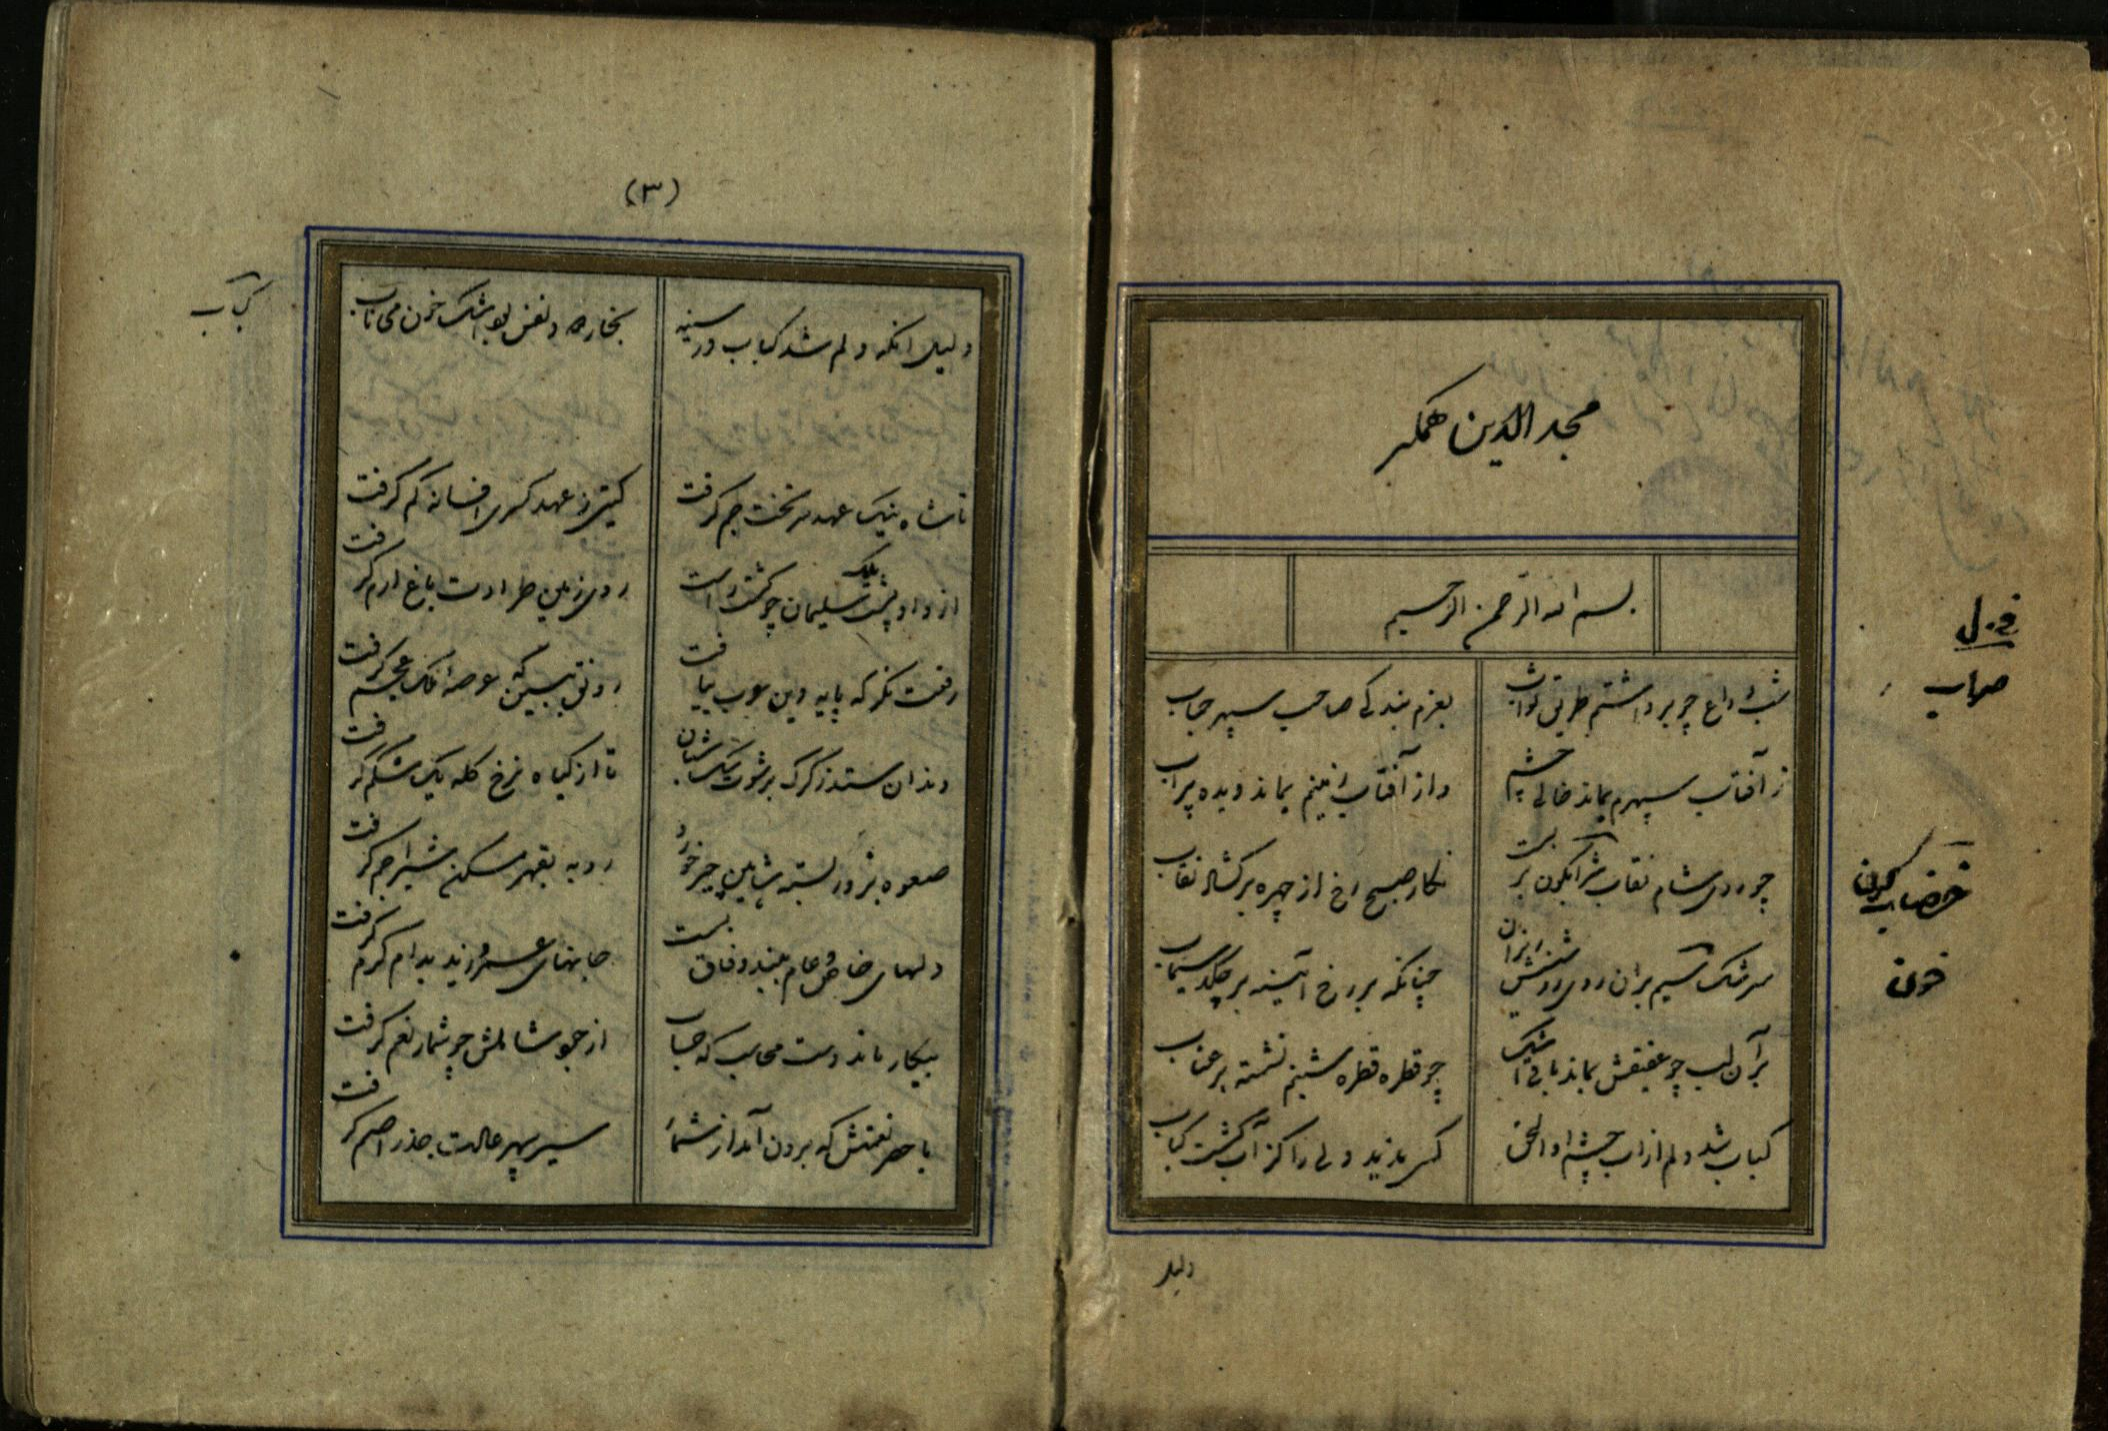 مجد الدین همگر
بسم الله الرحمن الرحیم
شب وداع چو برداشتم طریق ثواب
بعزم بندگی صاحب سپهر جناب
ز آفتاب سپهرم بماند خالی چشم
وز آفتاب زمینم بماند دیده پرآب
چو روی شام نقاب بست
نگار صبح رخ از چهره برگشاد نقاب
سرشک بران روی روشنش
چنانکه بر رخ آیینه بر چکد سیماب
بر آن لب چو عقیقش بماند باقی اشک
چو قطره قطره شبنم نشسته بر عناب
کباب شد دلم از آب چشم او الحق
کسی ندید دلی را کز آب گشت کباب
دلیل
قزل
صواب
خضاب گون
خون
(۳)
دلیل آنکه دلم شد کباب در سینه
بخار و نفس بود اشک خون می ناب
کباب
تا شاه نیک عهد سر تخت جم گرفت
گیتی ز عهد کسری افسانه کم گرفت
از داد پشت ملک سلیمان چو گشت راست
روی زمین طراوت باغ ارم گرفت
رفعت نگر که پایه دین عرب بیافت
رونق ببین که عرصه ملک عجم گرفت
دندان ستد ز گرگ شبان
تا از گیاه نرخ گله یک شکم گرفت
صعوه بزور بسته شاهین چیر خورد
روبه بقهر مسکن شیر اجم گرفت
دلهای خاص و عام ببند وفاق بست
جانهای عمرو و زید بدام کرم گرفت
بیکار ماند دست محاسب که حساب
از جو شمار نعم گرفت
با حصر نعمتش که برون آمد از شمار
سیر سپهر عادت جذر اصم گرفت